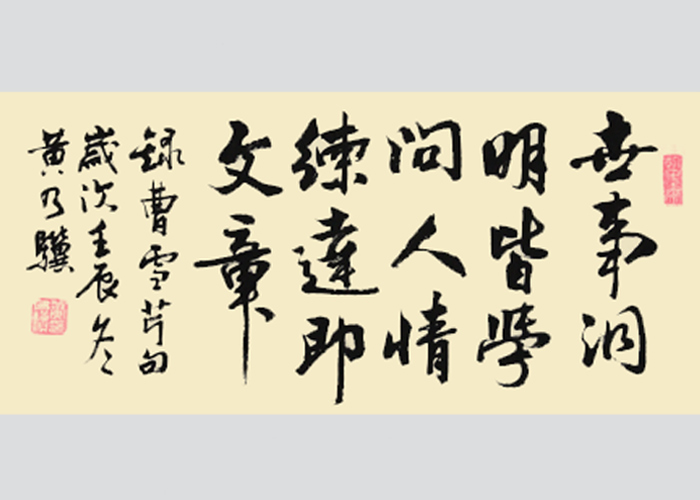 世事洞
明皆學
問人情
練達即
文章
錄曹雪芹句
歲次壬辰冬
黃乃驥